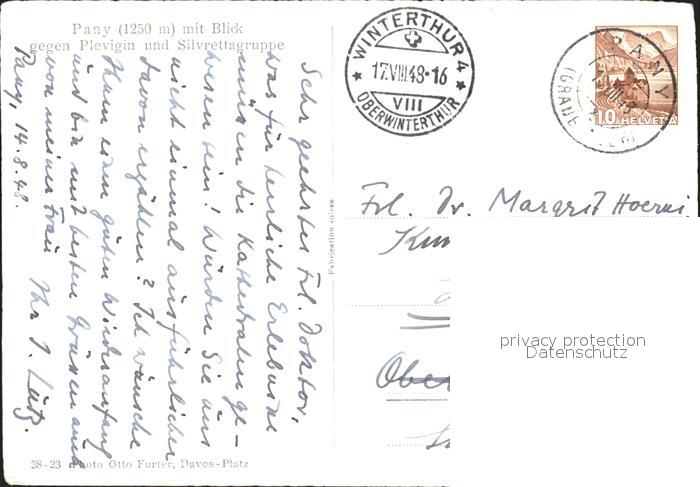 Pany (1250 m) mit Blick
gegen Plevigin und Silvrettagruppe
WINTERTHUR 4
17.VIII.48-16
VIII
OBERWINTERTHUR
PANY
(GRAUB
10 HELVETIA
Sehr geehrtes Frl. Doktor,
was für herrliche Erlebnisse
müssen die Kathedralen ge-
wesen sein! Würden Sie uns
nicht einmal ausführlicher
davon erzählen? Ich wünsche
Ihnen einen guten Wiederanfang
und bin mit besten Grüssen auch
von meiner Frau Ihr J. Lutz.
Pany, 14.8.48.
Fabrication suisse
Frl. Dr. Margrit Hoerni
privacy protection
Datenschutz
38-23 Photo Otto Furter, Davos-Platz